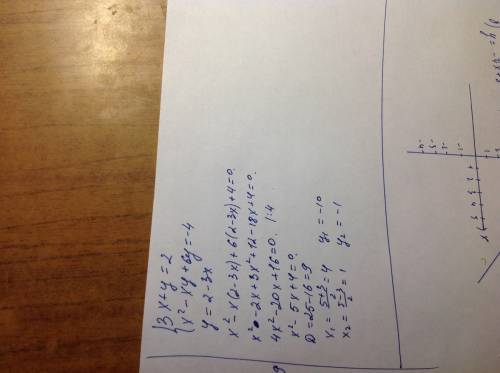 {3x+y=2
{x²-xy+6y=-4
y=2-3x
x²-x(2-3x)+6(2-3x)+4=0.
x²-2x+3x²+12-18x+4=0.
4x²-20x+16=0. |:4
x²-5x+4=0.
D=25-16=9
x₁=(5+3)/2=4 y₁=-10
x₂=(5-3)/2=1 y₂=-1